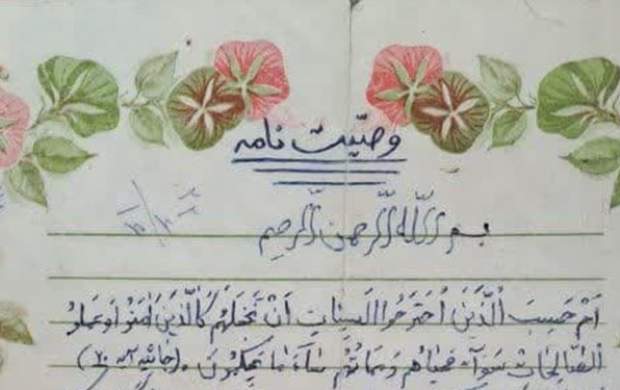 وصیّت نامه
بسم اللّه الرّحمن الرّحیم
اَم حَسِبَ الَّذینَ اجتَرَحُوا السَیِئاتِ اَنْ نَجعَلَهُم کَالَّذینَ اٰمَنُوا وَ عَمِلُو
الصّالِحاتِ سَوآءً مَحیاهُم وَ مَماتُهُم سٰاءَ مٰا یَحکُمُونَ (جاثیه آیه ۲۰)